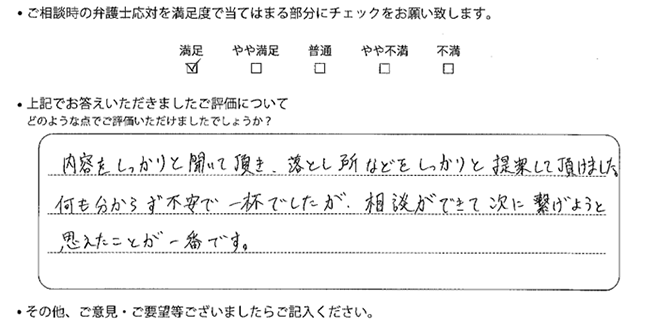 ・ご相談時の弁護士応対を満足度で当てはまる部分にチェックをお願い致します。
満足 やや満足 普通 やや不満 不満
☑ □ □ □ □
・上記でお答えいただきましたご評価について
どのような点でご評価いただけましたでしょうか?
内容をしっかりと聞いて頂き、落とし所などをしっかりと提案して頂けました。
何も分からず不安で一杯でしたが、相談ができて次に繋げようと
思えたことが一番です。
・その他、ご意見・ご要望等ございましたらご記入ください。